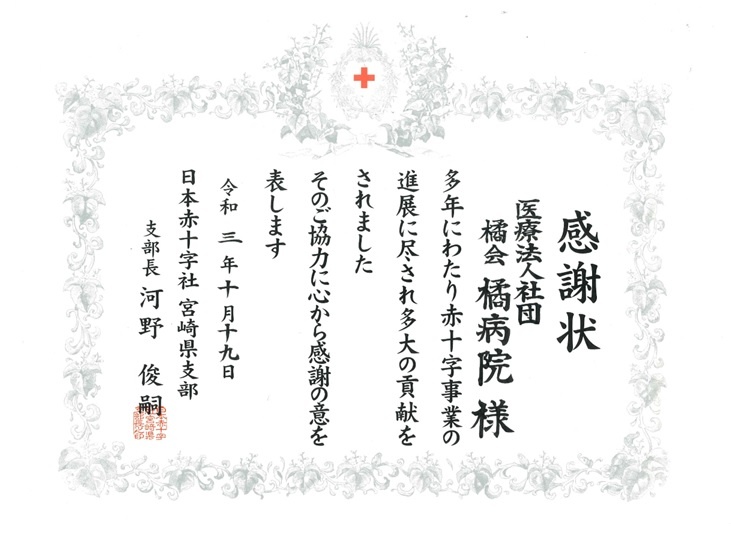 感謝状
医療法人社団
橘会 橘病院 様
多年にわたり赤十字事業の
進展に尽され多大の貢献を
されました
そのご協力に心から感謝の意を
表します
令和 三 年 十 月 十九 日
日本赤十字社 宮崎県支部
支部長 河野 俊嗣